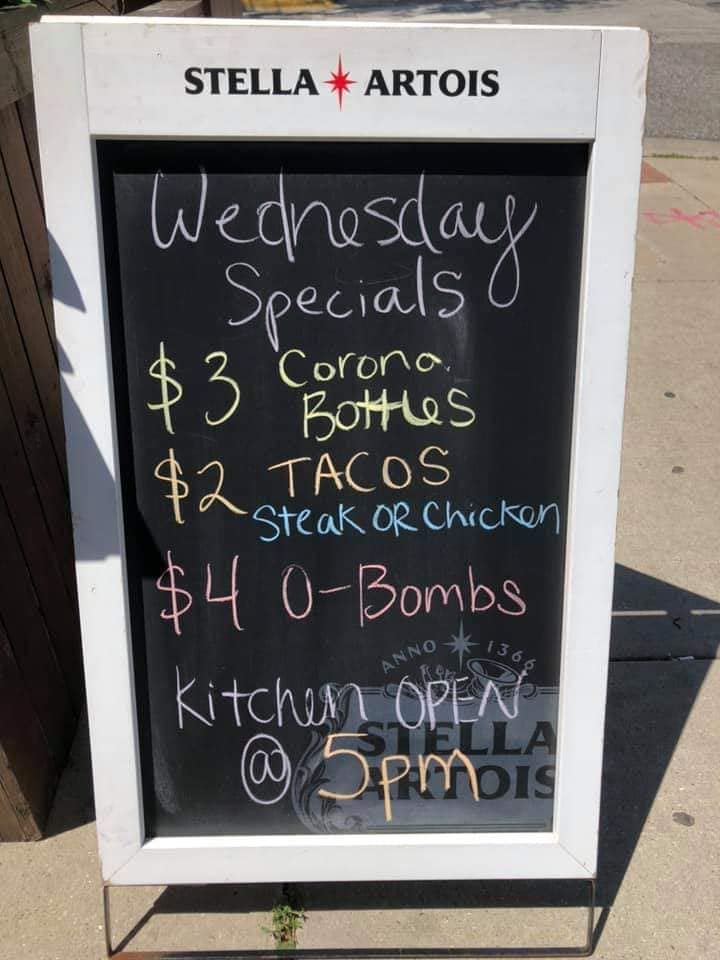 STELLA ARTOIS
Wednesday
Specials
$3 Corona
Bottles
$2 TACOS
Steak OR Chicken
$4 O-Bombs
ANNO 1366
Kitchen OPEN
@ 5pm
STELLA
ARTOIS